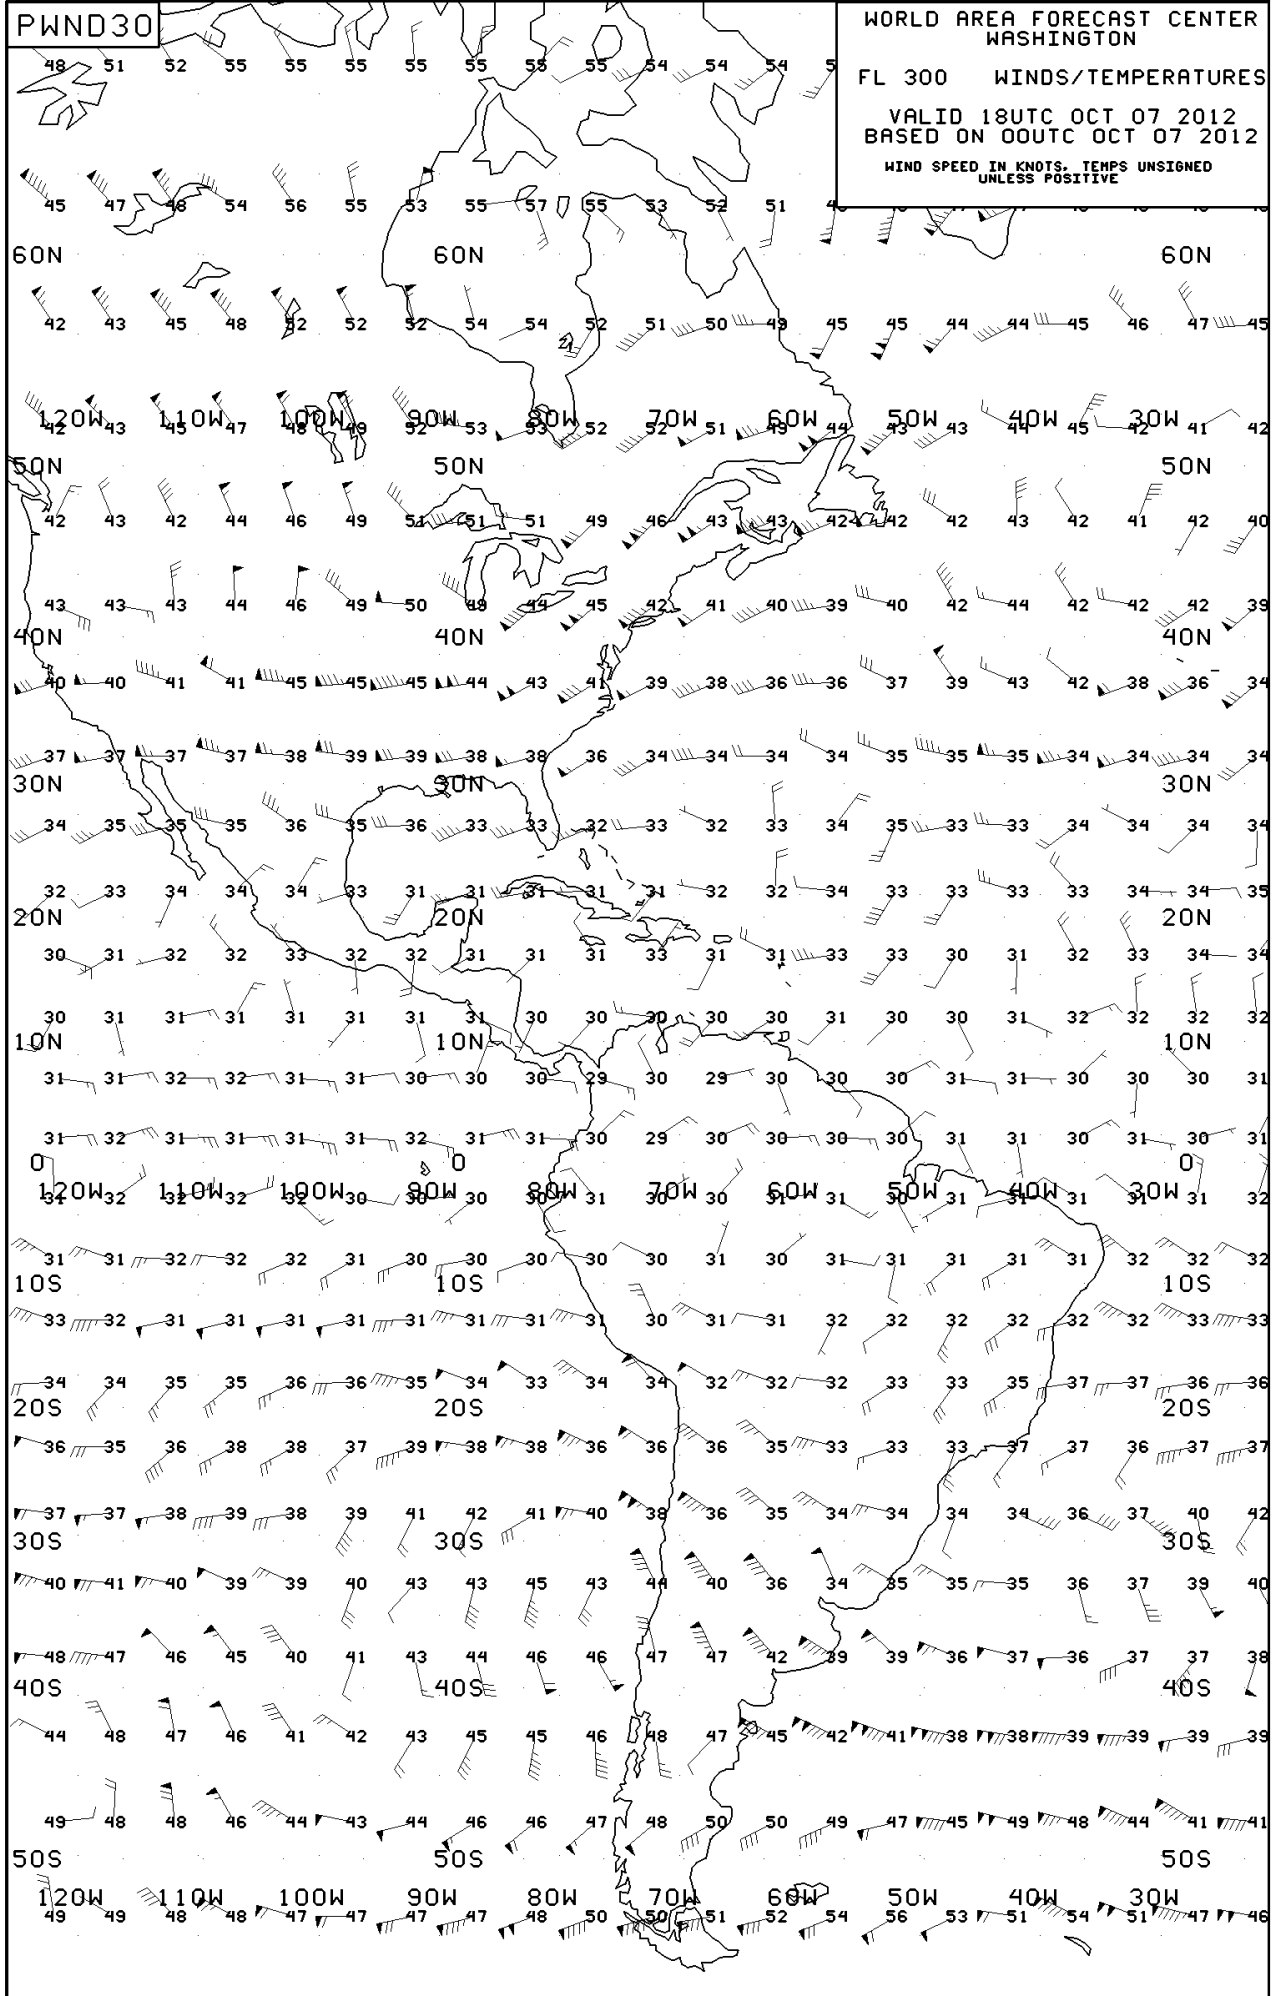 PWND30
WORLD AREA FORECAST CENTER
WASHINGTON
FL 300 WINDS/TEMPERATURES
VALID 18UTC OCT 07 2012
BASED ON 00UTC OCT 07 2012
WIND SPEED IN KNOTS, TEMPS UNSIGNED
UNLESS POSITIVE
48 51 52 55 55 55 55 55 55 55 54 54 54
45 47 48 54 56 55 53 55 57 55 53 52 51
60N 60N 60N
42 43 45 48 52 52 52 54 54 52 51 50 49 45 45 44 44 45 46 47 45
120W 110W 100W 90W 80W 70W 60W 50W 40W 30W
42 43 45 47 48 49 52 53 53 52 52 51 49 44 43 43 44 45 42 41 42
50N 50N 50N
42 43 42 44 46 49 51 51 51 49 46 43 43 42 42 42 43 42 41 42 40
43 43 43 44 46 49 50 49 44 45 42 41 40 39 40 42 44 42 42 42 39
40N 40N 40N
40 40 41 41 45 45 45 44 43 41 39 38 36 36 37 39 43 42 38 36 34
37 37 37 37 38 39 39 38 38 36 34 34 34 34 35 35 35 34 34 34 34
30N 30N 30N
34 35 35 35 36 35 36 33 33 32 33 32 33 34 35 33 33 34 34 34 34
32 33 34 34 34 33 31 31 31 31 31 32 32 34 33 33 33 33 34 34 35
20N 20N 20N
30 31 32 32 33 32 32 31 31 31 33 31 31 33 33 30 31 32 33 34 34
30 31 31 31 31 31 31 31 30 30 30 30 30 31 30 30 31 32 32 32 32
10N 10N 10N
31 31 32 32 31 31 30 30 30 29 30 29 30 30 30 31 31 30 30 30 31
31 32 31 31 31 31 32 31 31 30 29 30 30 30 30 31 31 30 31 30 31
0 0 0
120W 110W 100W 90W 80W 70W 60W 50W 40W 30W
31 32 32 32 32 30 30 30 30 31 30 30 31 31 30 31 31 31 31 31 32
31 31 32 32 32 31 30 30 30 30 30 31 30 31 31 31 31 31 32 32 32
10S 10S 10S
33 32 31 31 31 31 31 31 31 31 30 31 31 32 32 32 32 32 32 33 33
34 34 35 35 36 36 35 34 33 34 34 32 32 32 33 33 35 37 37 36 36
20S 20S 20S
36 35 36 38 38 37 39 38 38 36 36 36 35 33 33 33 37 37 36 37 37
37 37 38 39 38 39 41 42 41 40 38 36 35 34 34 34 34 36 37 40 42
30S 30S 30S
40 41 40 39 39 40 43 43 45 43 44 40 36 34 35 35 35 36 37 39 40
48 47 46 45 40 41 43 44 46 46 47 47 42 39 39 36 37 36 37 37 38
40S 40S 40S
44 48 47 46 41 42 43 45 45 46 48 47 45 42 41 38 38 39 39 39 39
49 48 48 46 44 43 44 46 46 47 48 50 50 49 47 45 49 48 44 41 41
50S 50S 50S
120W 110W 100W 90W 80W 70W 60W 50W 40W 30W
49 49 48 48 47 47 47 47 48 50 50 51 52 54 56 53 51 54 51 47 46